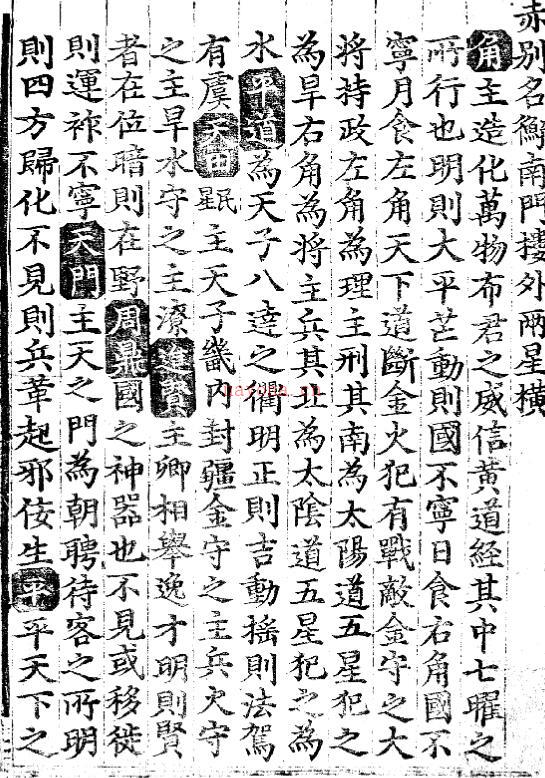 赤别名觧南門樓外兩星橫
角主造化萬物布君之威信黃道經其中七曜之
所行也明則大平芒動則國不寧日食右角國不
寧月食左角天下道斷金火犯有戰敵金守之大
將持政左角為理主刑其南為太陽道五星犯之
為旱右角為將主兵其北為太陰道五星犯之為
水平道為天子八達之衢明正則吉動搖則法駕
有虞天田星民主天子畿內封疆金守之主兵火守
之主旱水守之主潦進賢主卿相舉逸才明則賢
者在位暗則在野周鼎國之神器也不見或移徙
則運祚不寧天門主天之門為朝聘待客之所明
則四方歸化不見則兵革起邪佞生平平天下之